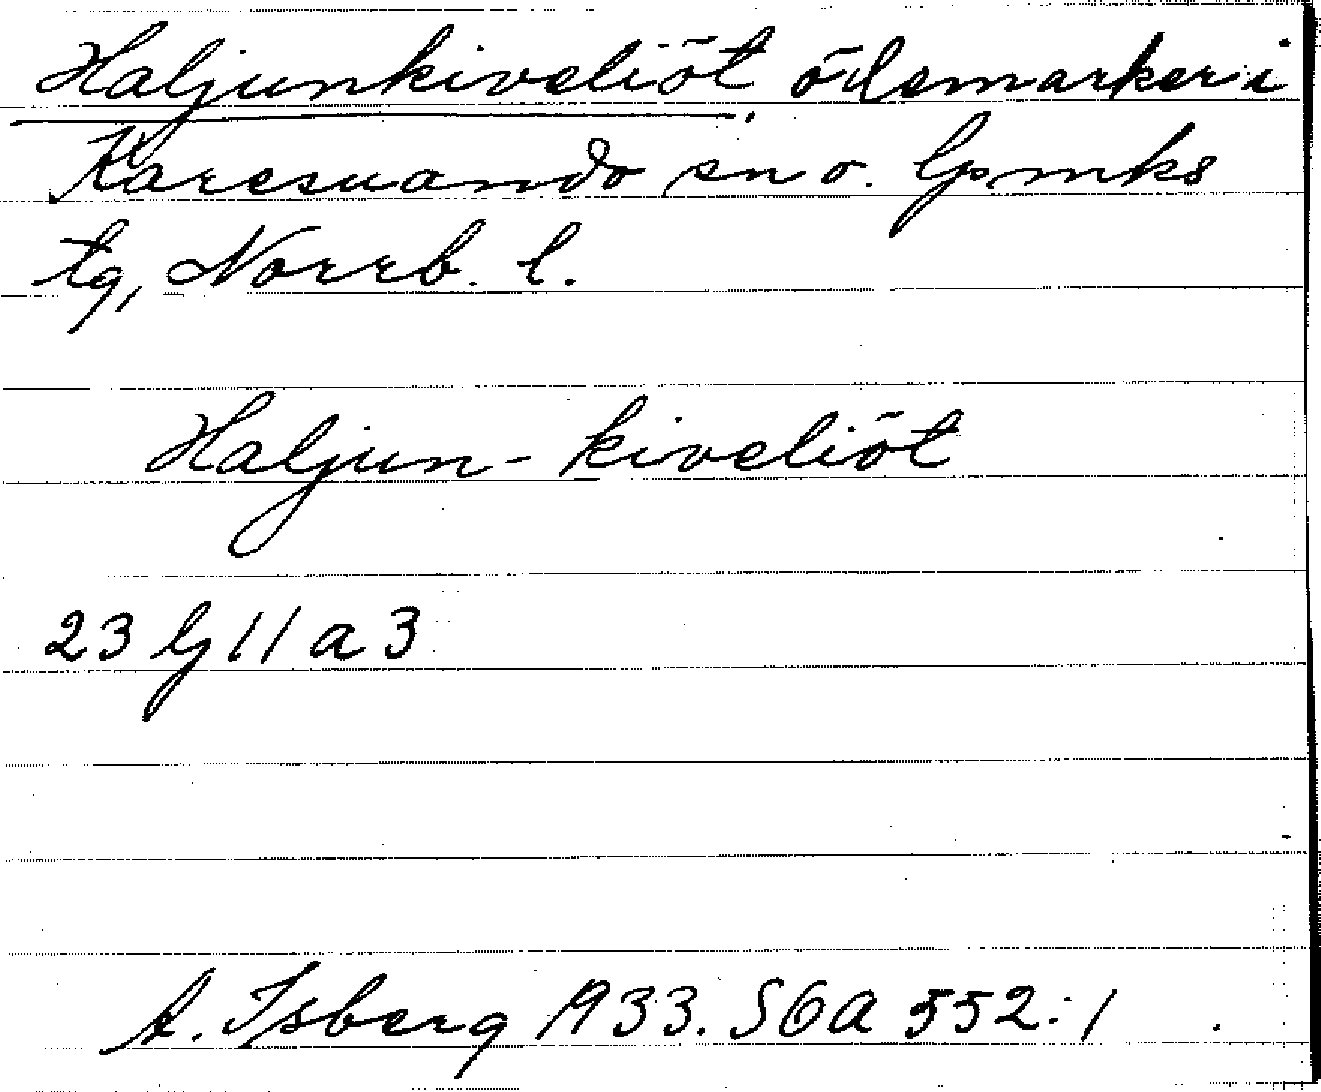 Haljunkiveliöt, ödemarker i
Karesuando sn o. lpmks
tg, Norrb. l.
Haljun- kiveliöt
23 lj 11 a 3
A. Isberg 1933. SOA 552:1